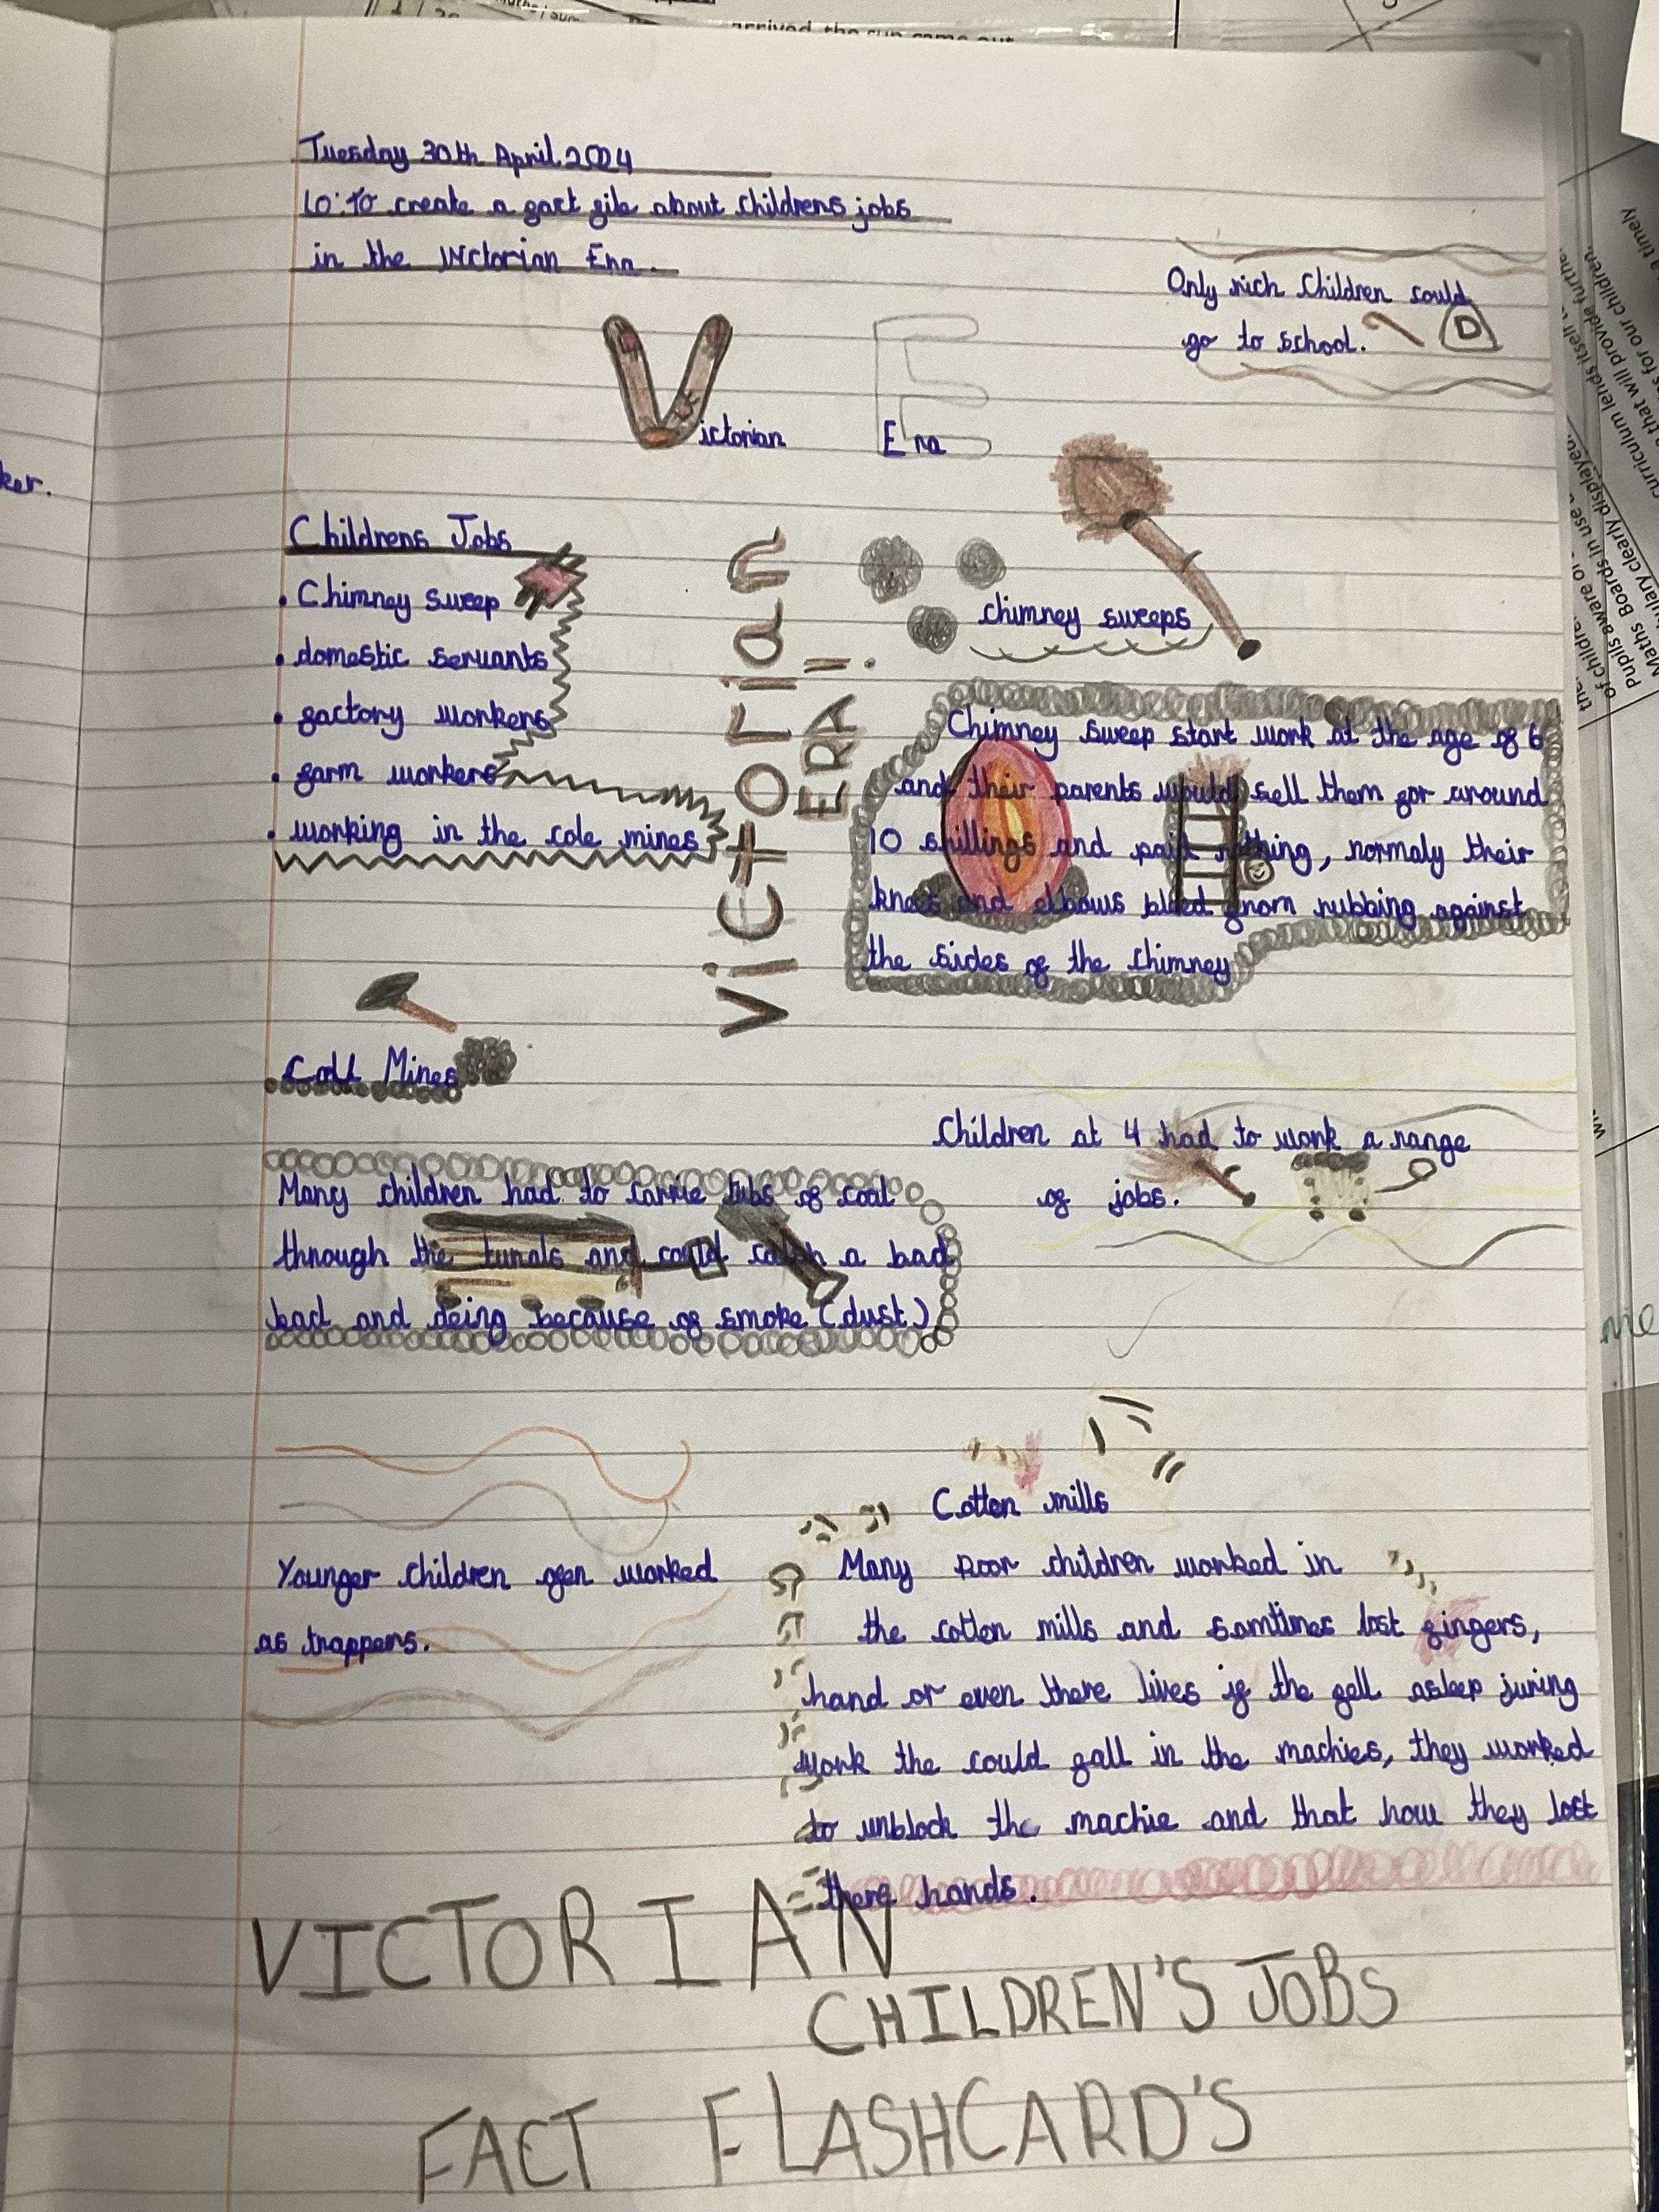 Tuesday 30th April 2024
LO: To create a fact file about childrens jobs
in the Victorian Era.
Only rich children could
go to school.
D
Victorian Era
E
Childrens Jobs
• Chimney sweep
• domestic servants
• factory workers
• farm workers
• working in the cole mines
VicTOrian
ERA!
chimney sweeps
Chimney sweep start work at the age of 6
and their parents would sell them for around
10 shillings and paid nothing, normaly their
knees and elbows bleed from rubbing against
the sides of the chimney
Mines
Many children had to carrie tubs of coal
through the tunals and could catch a bad
bad and deing because of smoke (dust)
Children at 4 had to work a range
of jobs.
Younger children ofen worked
as trappers.
Cotton mills
Many Poor children worked in
the cotton mills and somtimes lost fingers,
hand or even there lives if the fell asleep juring
work the could fall in the machies, they worked
to unblock the machie and that how they lost
there hands.
VICTORIAN
CHILDREN'S JOBS
FACT FLASHCARD'S
ker.
me
arrived, the sun came out